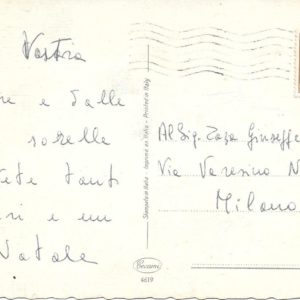 Vostra
re e dalle
sorelle
ete tant
ri e un
Natale
Stampato in Italia - Imprimé en Italie - Printed in Italy
Al Sig. Zaza Giuseppe
Via Varesina N
Milano
Cecami
4619